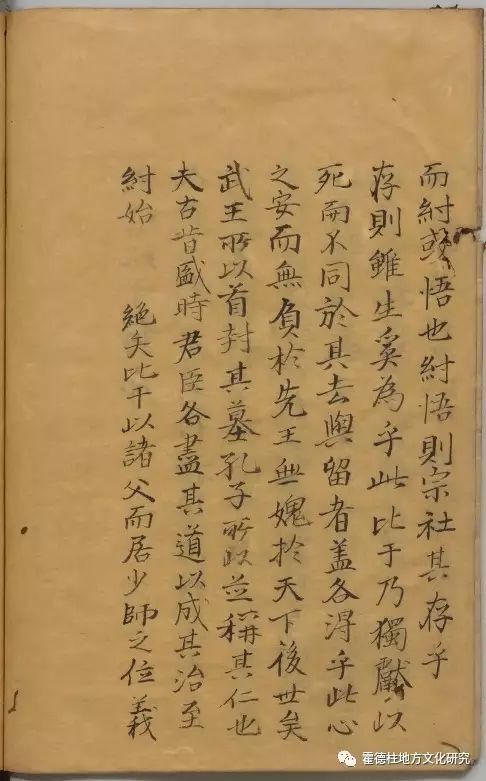 而紂或悟也紂悟則宗社其存乎
存則雖生奚為乎此比干乃獨獻以
死而不同於其去與留者盖各得乎此心
之安而無負於先王無媿於天下後世矣
武王所以首封其墓孔子所以並稱其仁也
夫古昔盛時君臣各盡其道以成其治至
紂始　　絕矣比干以諸父而居少師之位義
霍德柱地方文化研究